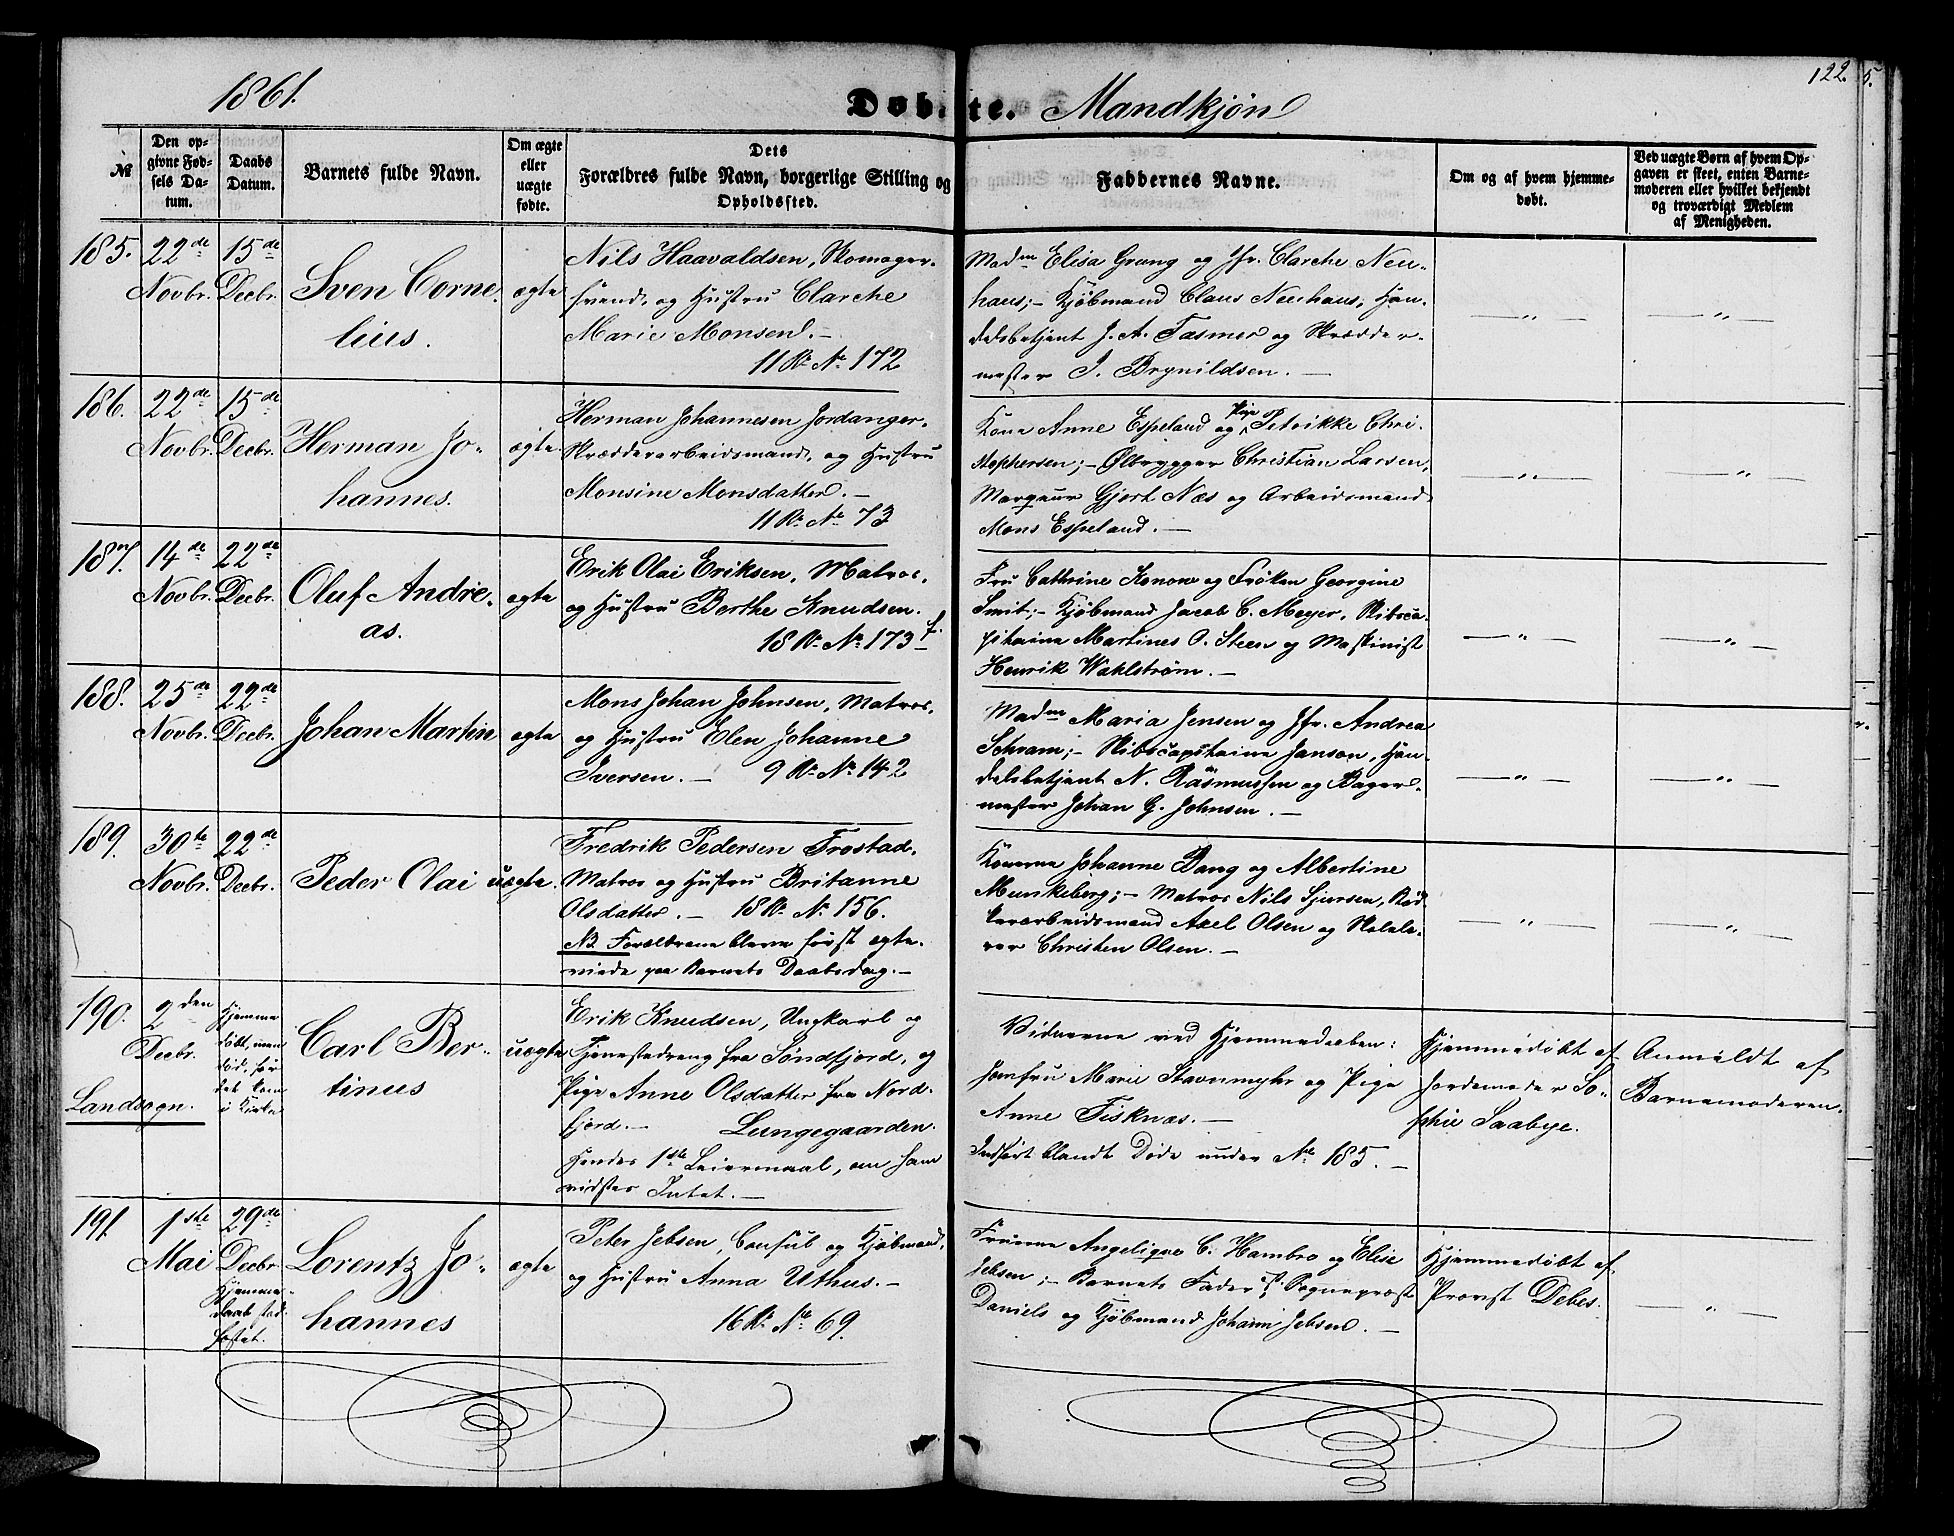 1861.
Døbte. Mandkjøn
122.
5.
№
Den op-
givne Fød-
sels Da-
tum.
Daabs
Datum.
Barnets fulde Navn.
Om ægte
eller
uægte
fødte.
Dets
Forældres fulde Navn, borgerlige Stilling og
Opholdssted.
Faddernes Navne.
Om og af hvem hjemme-
døbt.
Ved uægte Børn af hvem Op-
gaven er skeet, enten Barne-
moderen eller hvilket bekjendt
og troværdigt Medlem
af Menigheden.
185. 22de Novbr. 15de Decbr.
Sven Corne-
lius.
ægte
Nils Haavaldsen, Skomager-
svend, og Hustru Clarche
Marie Monsen. –
11 R. No. 172
Madm Elisa Grung og Jfr. Clarche Neu-
haus; – Kjøbmand Claus Neuhaus, Han-
delsbetjent J. A. Tasmer og Skrædder-
mester J. Brynildsen. –
– „ – – „ –
186. 22de Novbr. 15de Decbr.
Herman Jo-
hannes.
ægte
Herman Johannesen Jordanger,
Skrædderarbeidsmand, og Hustru
Monsine Monsdatter. –
11 R. No. 73
Kone Anne Espeland og Pige Petrikke Chri-
stophersen; – Ølbrygger Christian Larsen,
Margaur Gjert Næs og Arbeidsmand
Mons Espeland. –
– „ – – „ –
187. 14de Novbr. 22de Decbr.
Oluf Andre-
as.
ægte
Erik Olai Eriksen, Matros,
og Hustru Berthe Knudsen.
18 R. No. 173 f.
Fru Cathrine Konow og Frøken Georgine
Smit; – Kjøbmand Jacob C. Meyer, Skibsca-
pitaine Martines O. Steen og Maskinist
Henrik Wahlstrøm. –
– „ – – „ –
188. 25de Novbr. 22de Decbr.
Johan Martin
ægte
Mons Johan Johnsen, Matros,
og Hustru Elen Johanne
Iversen. – 9 R. No. 142
Madm Maria Jensen og Jfr. Andrea
Schram; – Skibscapitaine Janson, Han-
delsbetjent N. Rasmussen og Bager-
mester Johan G. Johnsen. –
– „ – – „ –
189. 30te Novbr. 22de Decbr.
Peder Olai
uægte.
Fredrik Pedersen Frostad,
Matros og Hustru Britanne
Olsdatter. – 18 R. No. 156.
NB Forældrene bleve først ægte-
viede paa Barnets Daabsdag. –
Konerne Johanne Bang og Albertine
Munkeberg; – Matros Nils Sjursen, Bød-
kerarbeidsmand Axel Olsen og Skolelæ-
rer Christen Olsen. –
– „ – – „ –
190. 2den Decbr.
Hjemme
døbt, men
død, før
det kom
i Kirke
Landsogn.
Carl Ber-
tinus
uægte
Erik Knudsen, Ungkarl og
Tjenestedreng fra Søndfjord, og
Pige Anne Olsdatter fra Nord-
fjord. – Lungegaarden.
Hendes 1ste Leiermaal, om ham
vidstes Intet. –
Vidnerne ved Hjemmedaaben:
Jomfru Marie Stavnmyhr og Pige
Anne Fisknæs. –
Indført blandt Døde under No. 185. –
Hjemmedøbt af
Jordemoder So-
phie Saabye.
Anmeldt af
Barnemoderen.
191. 1ste Mai 29de Decbr.
Hjemme-
daab stad-
fæstet.
Lorentz Jo-
hannes
ægte
Peter Jebsen, Consul og Kjøbmand,
og Hustru Anna Uthus. –
16 R. No. 69.
Fruerne Angelique C. Hambro og Elise
Jebsen; – Barnets Fader, Sogneprest
Daniels og Kjøbmand Johann Jebsen. –
Hjemmedøbt af
Provst Debes.
– „ –